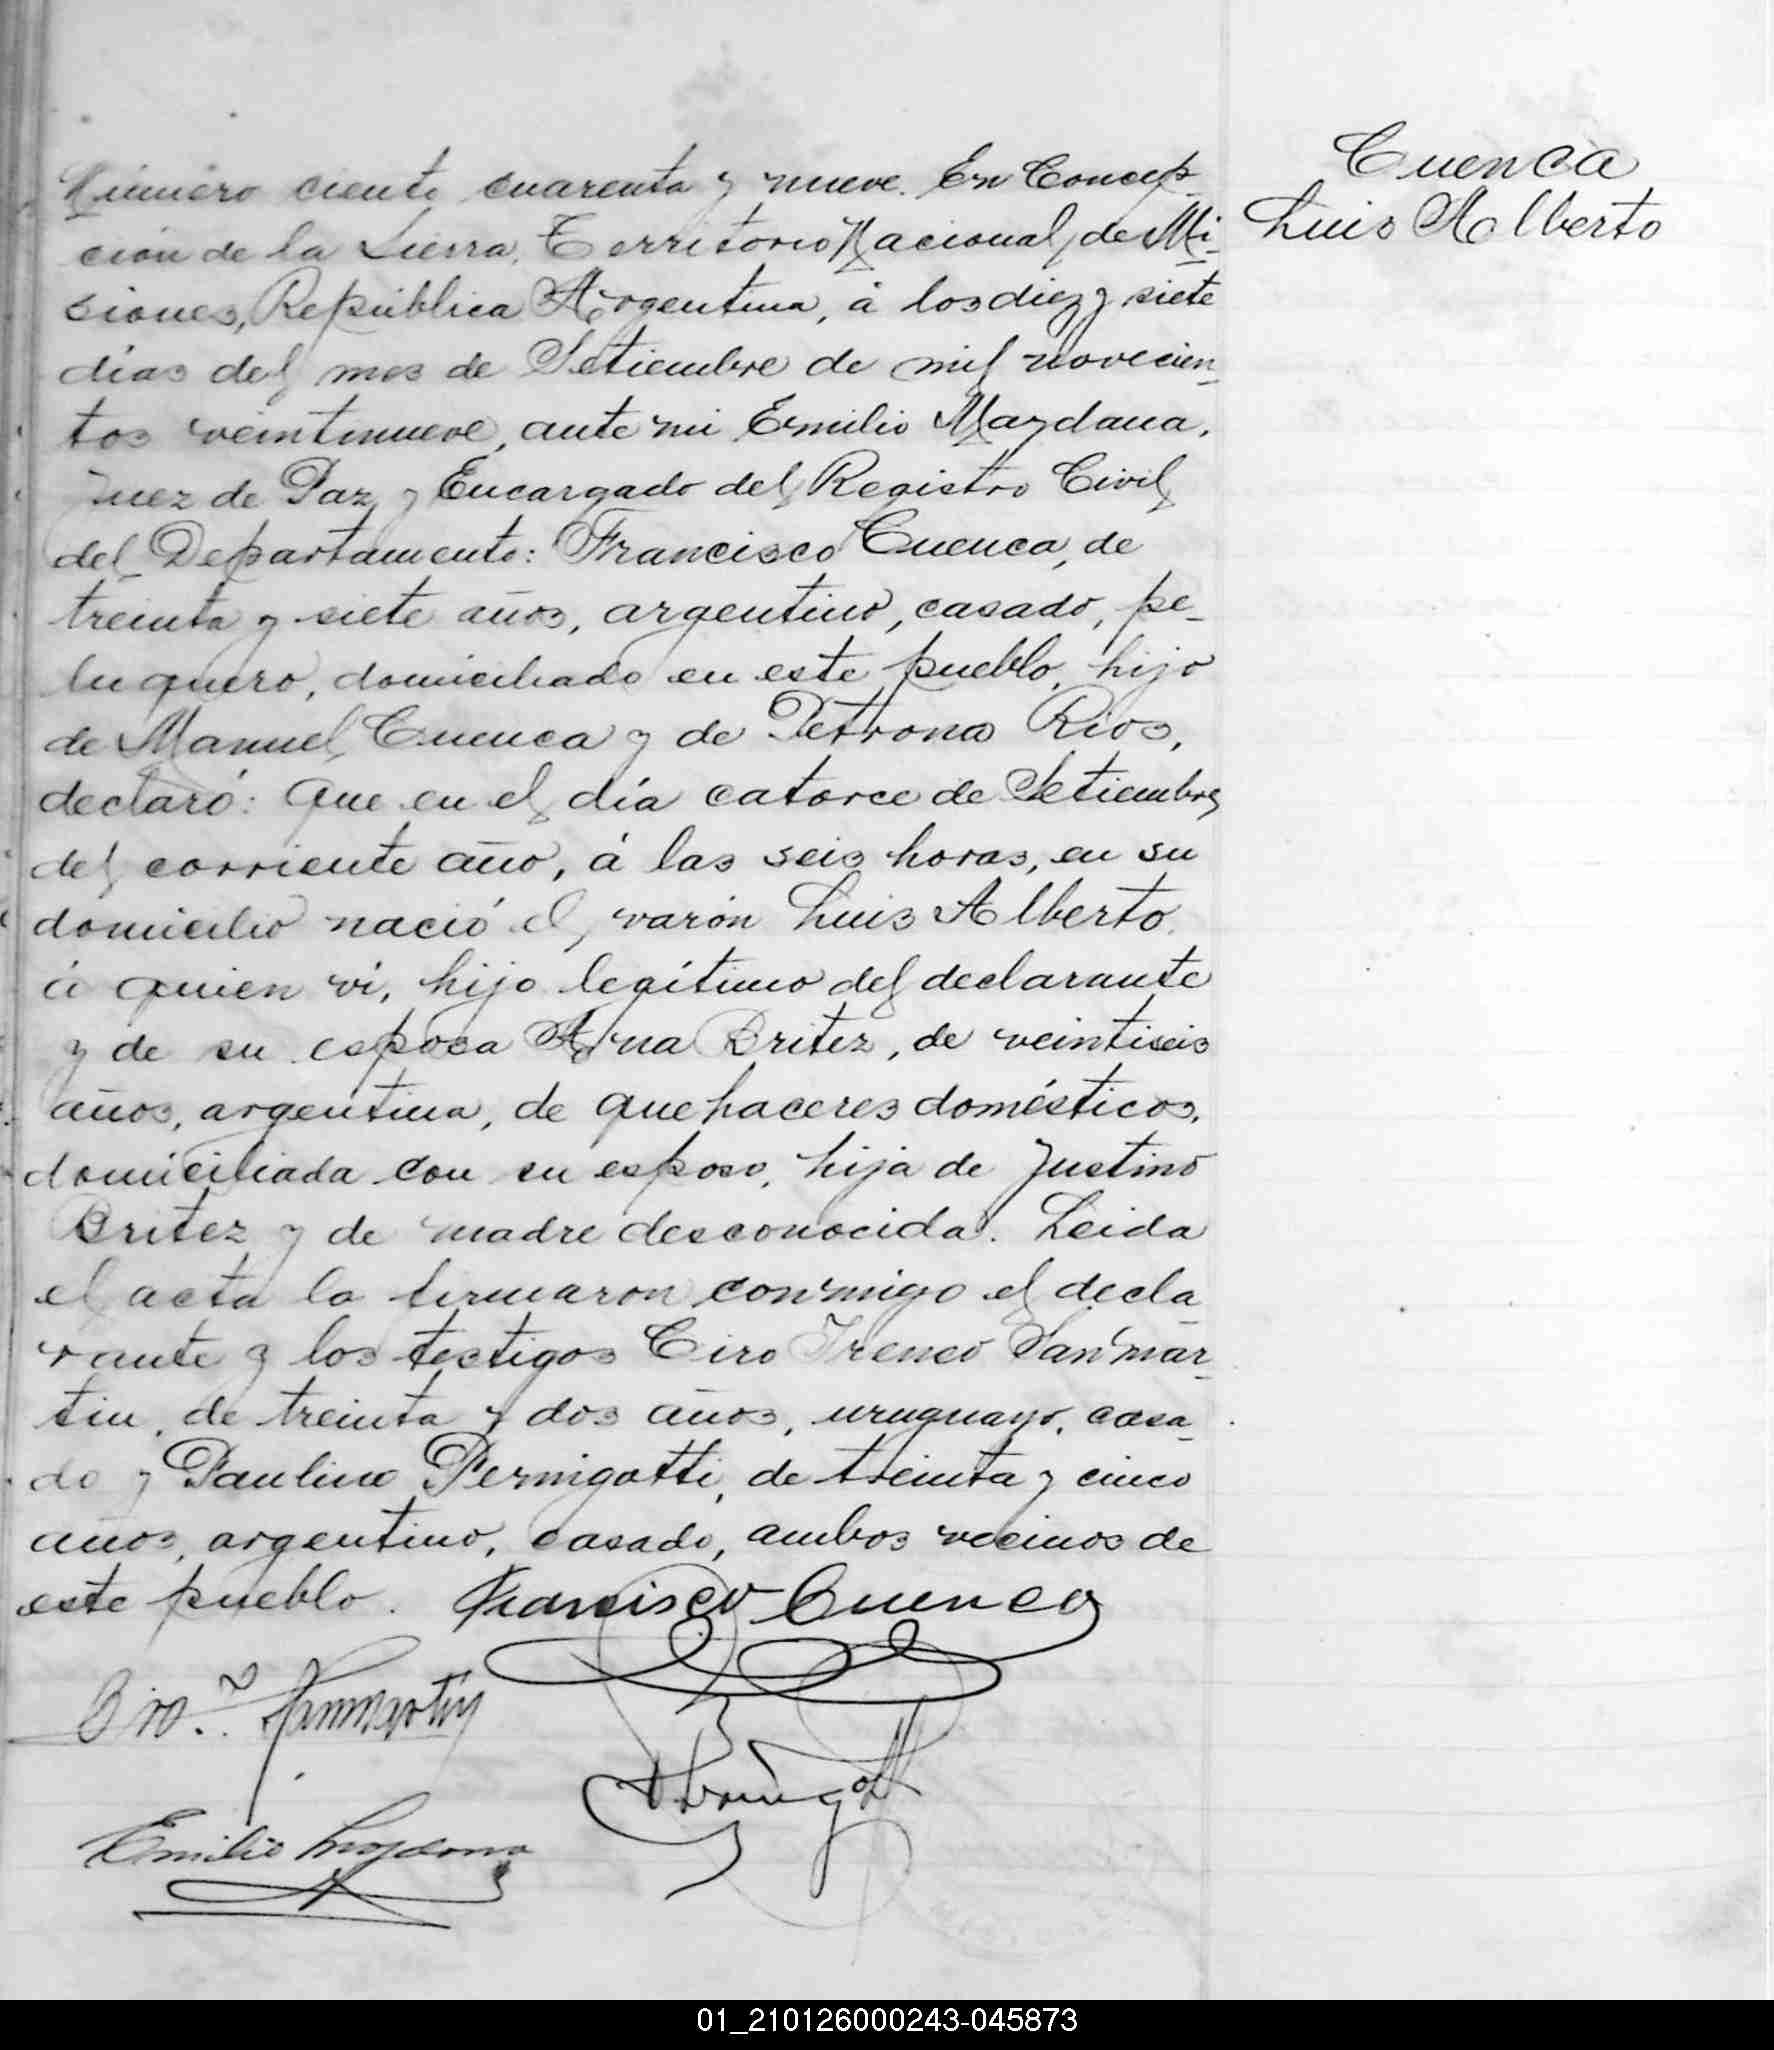 Número ciento cuarenta y nueve. En Concep-
ción de la Sierra, Territorio Nacional de Mi-
siones, República Argentina, á los diez y siete
días del mes de Setiembre de mil novecien-
tos veintinueve, ante mi Emilio Maydana,
Juez de Paz y Encargado del Registro Civil
del Departamento: Francisco Cuenca, de
treinta y siete años, argentino, casado, pe-
luquero, domiciliado en este pueblo, hijo
de Manuel Cuenca y de Petrona Rios,
declaró: Que en el día catorce de Setiembre
del corriente año, á las seis horas, en su
domicilio nació el varón Luis Alberto
á quien ví, hijo legítimo del declarante
y de su esposa Ana Britez, de veintiseis
años, argentina, de quehaceres domésticos,
domiciliada con su esposo, hija de Justino
Britez y de madre desconocida. Leida
el acta la firmaron conmigo el decla-
rante y los testigos Ciro Ireneo Sanmar-
tin, de treinta y dos años, uruguayo, casa-
do y Paulino Pernigotti, de treinta y cinco
años, argentino, casado, ambos vecinos de
este pueblo. Francisco Cuenca
Ciro I. Sanmartin
Pernigotti
Emilio Maydana
Cuenca
Luis Alberto
01_210126000243-045873